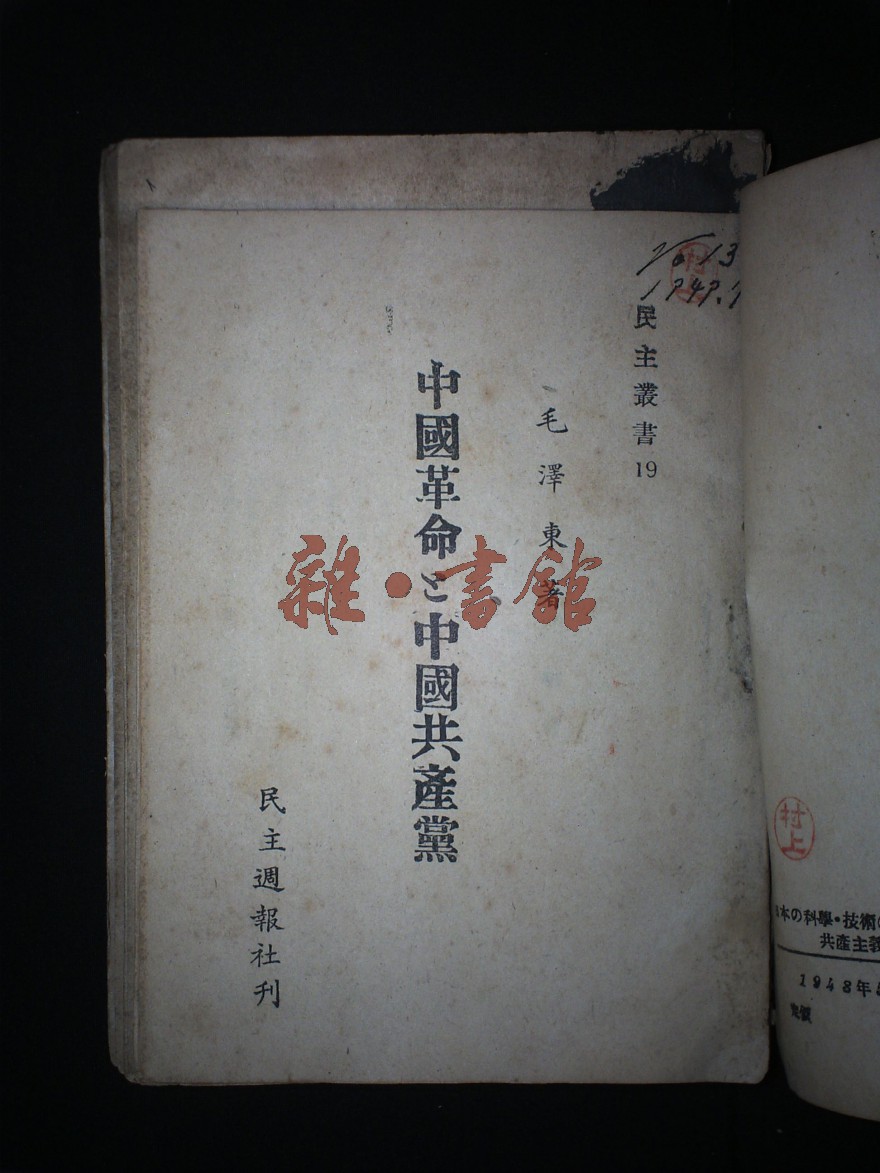 No 13
1949.
村上
民主叢書19
毛澤東著
中國革命と中國共產黨
民主週報社刊
雜・書館
村上
本の科學・技術
共產主義
1948年
定價